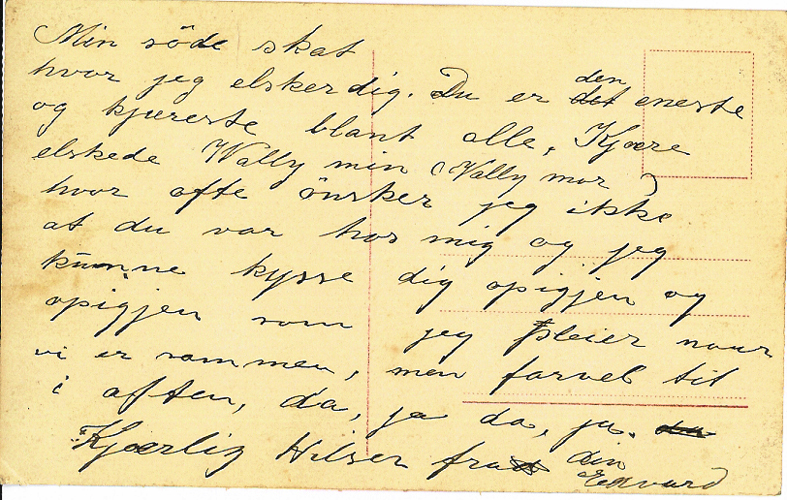 Min söde skat
hvor jeg elsker dig. Du er den eneste
og kjæreste blant alle, Kjære
elskede Wally min (Vally mor)
hvor ofte önsker jeg ikke
at du var hos mig og jeg
kunne kysse dig opigjen og
opigjen som jeg pleier naar
vi er sammen, men farvel til
i aften, da, ja da, ja.
Kjærlig Hilsen fra din
Edvard